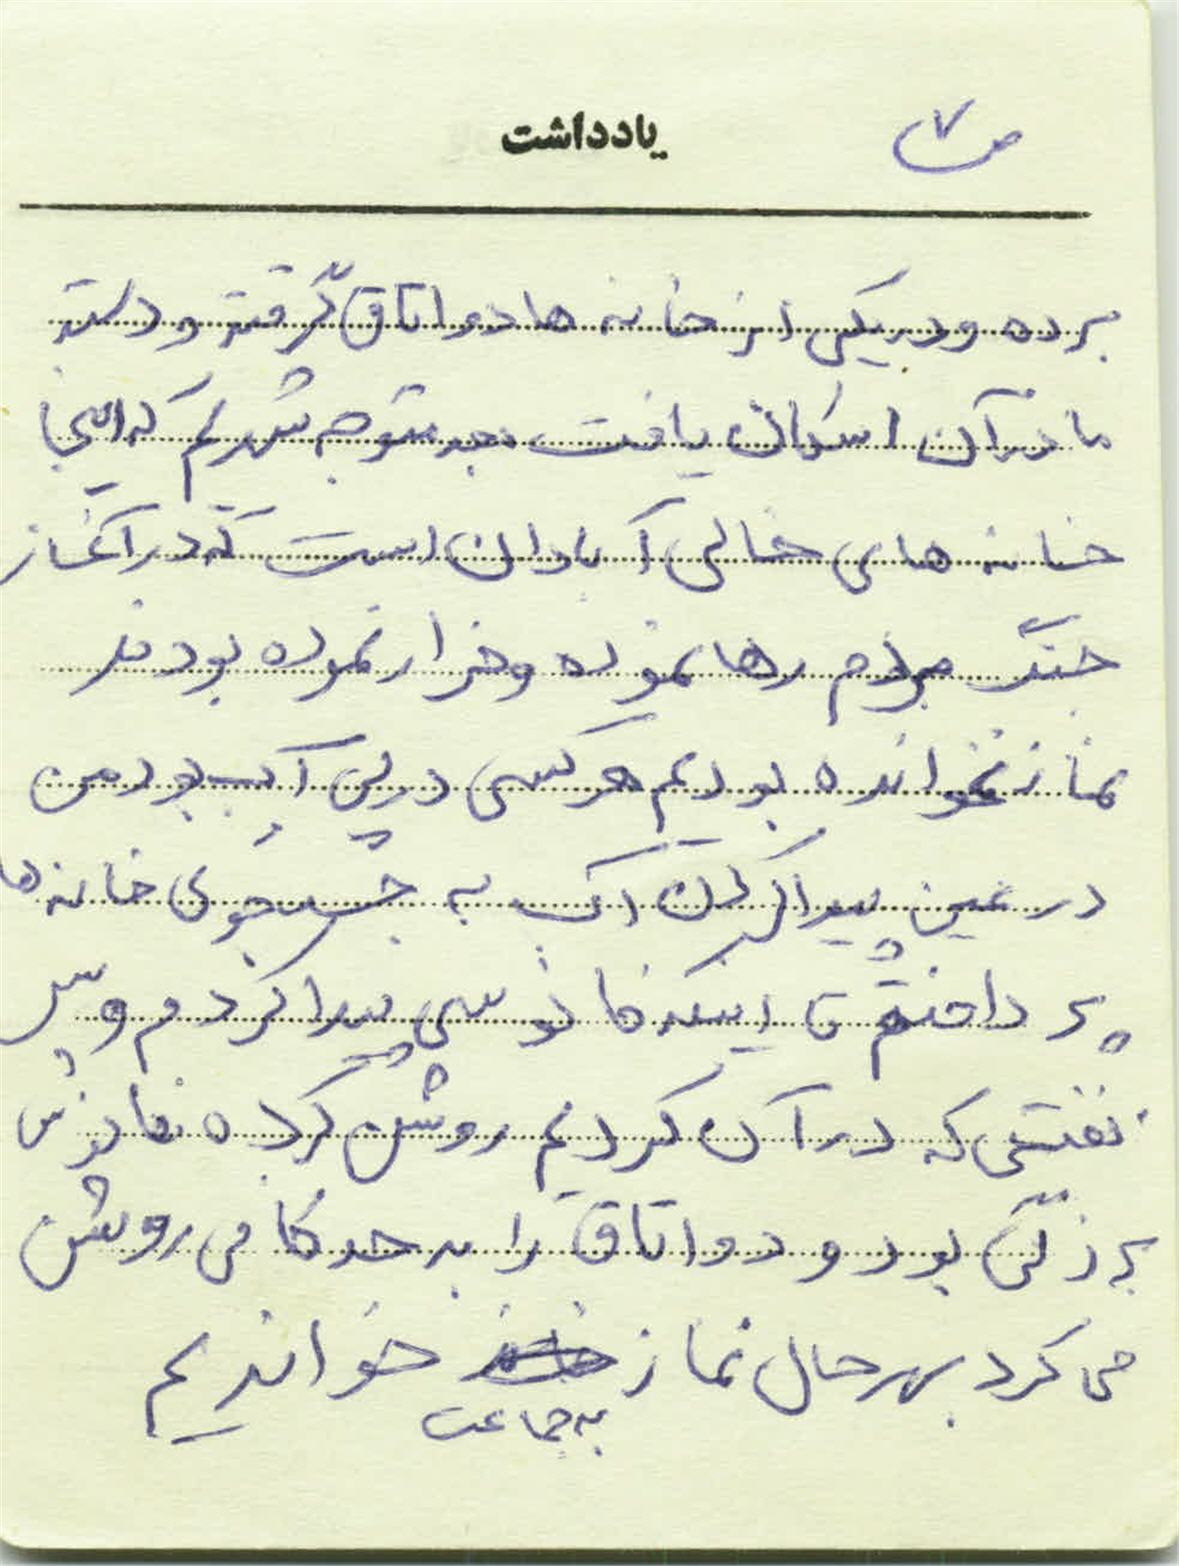 یادداشت
ص ۷
برده و در یکی از خانه ها دو اتاق گرفته و دسته
ما در آن اسکان یافت بعد متوجه شدیم که اینجا
خانه های خالی آبادان است که در آغاز
جنگ مردم رها نموده و فرار نموده بودند
نماز نخوانده بودیم هرکسی در پی آب بود من
در عین پیدا کردن آب به جستجوی خانه ها
پرداختم تا اینکه فانوسی پیدا کردم و پس
نفتی که در آن کردیم روشن کرده فانوس
بزرگی بود و دو اتاق را به حد کافی روشن
می کرد بهرحال نماز خواندیم
به جماعت